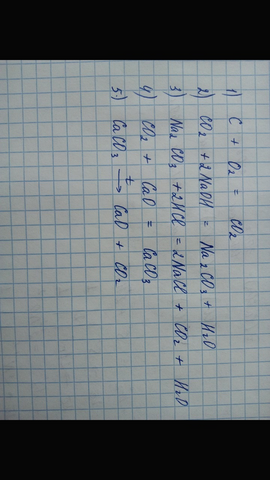 1) C + O₂ = CO₂
2) CO₂ + 2NaOH = Na₂CO₃ + H₂O
3) Na₂CO₃ + 2HCl = 2NaCl + CO₂ + H₂O
4) CO₂ + CaO = CaCO₃
5) CaCO₃ t→ CaO + CO₂